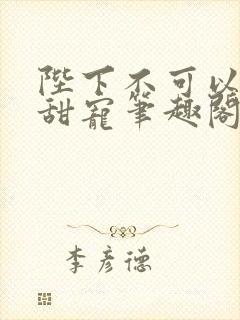 陛下不可以
甜宠笔趣阁
李彦德